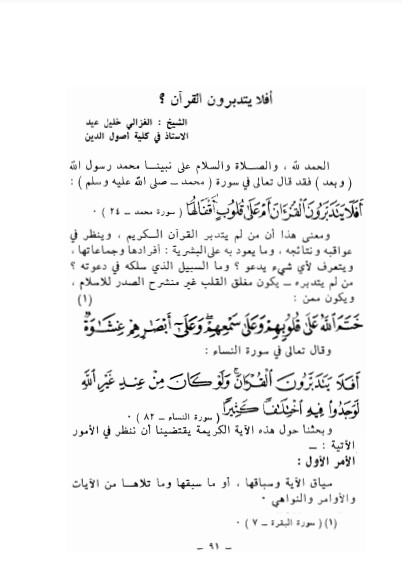 أفلا يتدبرون القرآن ؟
الشيخ : الغزالي خليل عيد
الاستاذ في كلية أصول الدين
الحمد لله ، والصلاة والسلام على نبينا محمد رسول الله
( وبعد ) فقد قال تعالى في سورة ( محمد ـ صلى الله عليه وسلم ) :
أَفَلَا يَتَدَبَّرُونَ الْقُرْءَانَ أَمْ عَلَىٰ قُلُوبٍ أَقْفَالُهَا ( سورة محمد ـ ٢٤ ) ٠
ومعنى هذا أن من لم يتدبر القرآن الكريم ، وينظر في
عواقبه ونتائجه ، وما يعود به على البشرية : أفرادها وجماعاتها ،
ويتعرف لأي شيء يدعو ؟ وما السبيل الذي سلكه في دعوته ؟
من لم يتدبره ـ يكون مغلق القلب غير منشرح الصدر للاسلام ،
ويكون ممن : (١)
خَتَمَ اللَّهُ عَلَىٰ قُلُوبِهِمْ وَعَلَىٰ سَمْعِهِمْ وَعَلَىٰ أَبْصَارِهِمْ غِشَاوَةٌ
وقال تعالى في سورة النساء :
أَفَلَا يَتَدَبَّرُونَ الْقُرْءَانَ وَلَوْ كَانَ مِنْ عِندِ غَيْرِ اللَّهِ
لَوَجَدُوا فِيهِ اخْتِلَافًا كَثِيرًا ( سورة النساء ـ ٨٢ ) ٠
وبحثنا حول هذه الآية الكريمة يقتضينا أن ننظر في الأمور
الآتية : ـ
الأمر الأول :
سياق الآية وسباقها ، أو ما سبقها وما تلاها من الآيات
والأوامر والنواهي ٠
(١) ( سورة البقرة ـ ٧ ) ٠
ـ ٩١ ـ